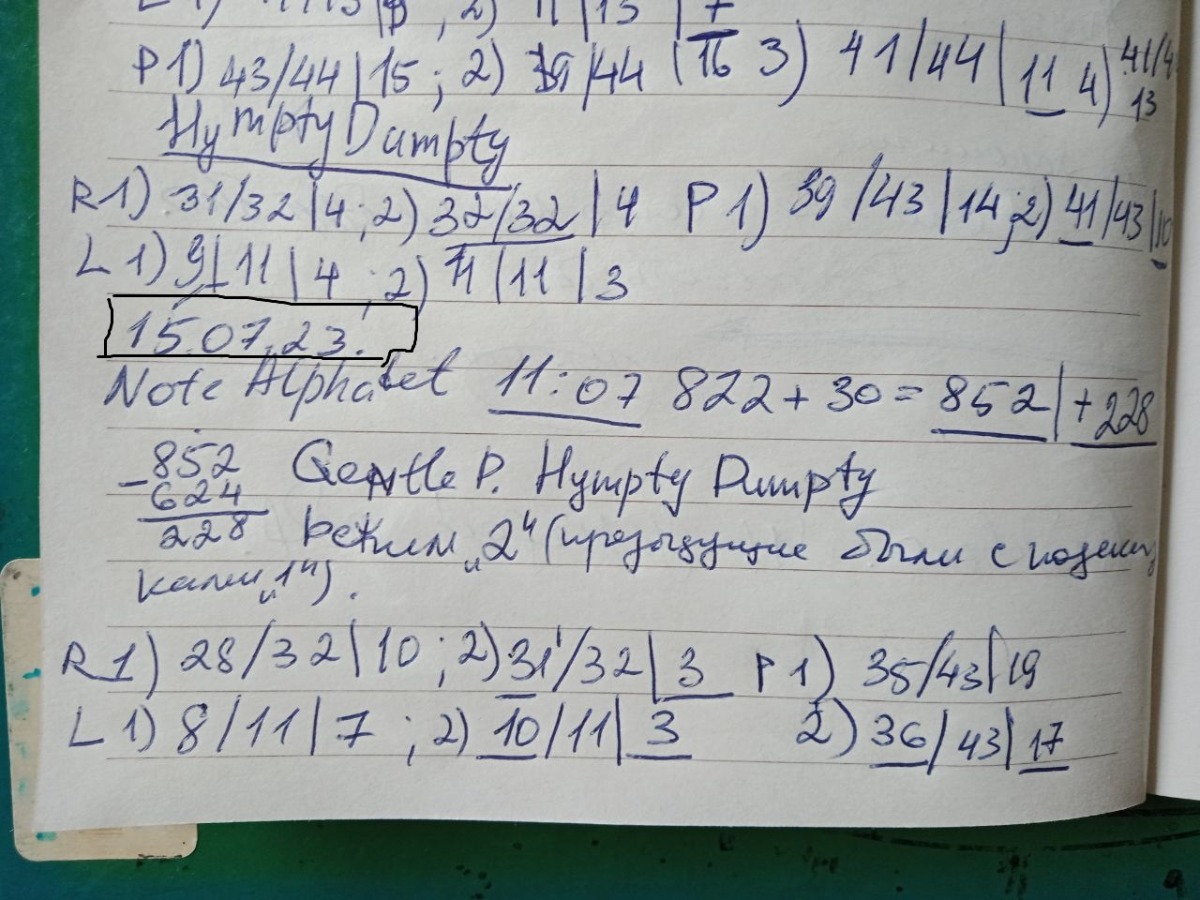 2) 11/13|7
P1) 43/44|15; 2) 39/44 (16 3) 41/44|11 4) 41/4
13
Hympty Dumpty
R1) 31/32|4; 2) 32/32|4 P1) 39/43|14; 2) 41/43|10
L1) 9/11|4; 2) 11/11|3
15.07.23.
Note Alphabet 11:07 822+30=852|+228
852 Gentle P. Hympty Dumpty
-624
228 Режим „2" (предыдущие были с подсказ
ками „1").
R1) 28/32|10; 2) 31/32|3 P1) 35/43|19
L1) 8/11|7; 2) 10/11|3 2) 36/43|17